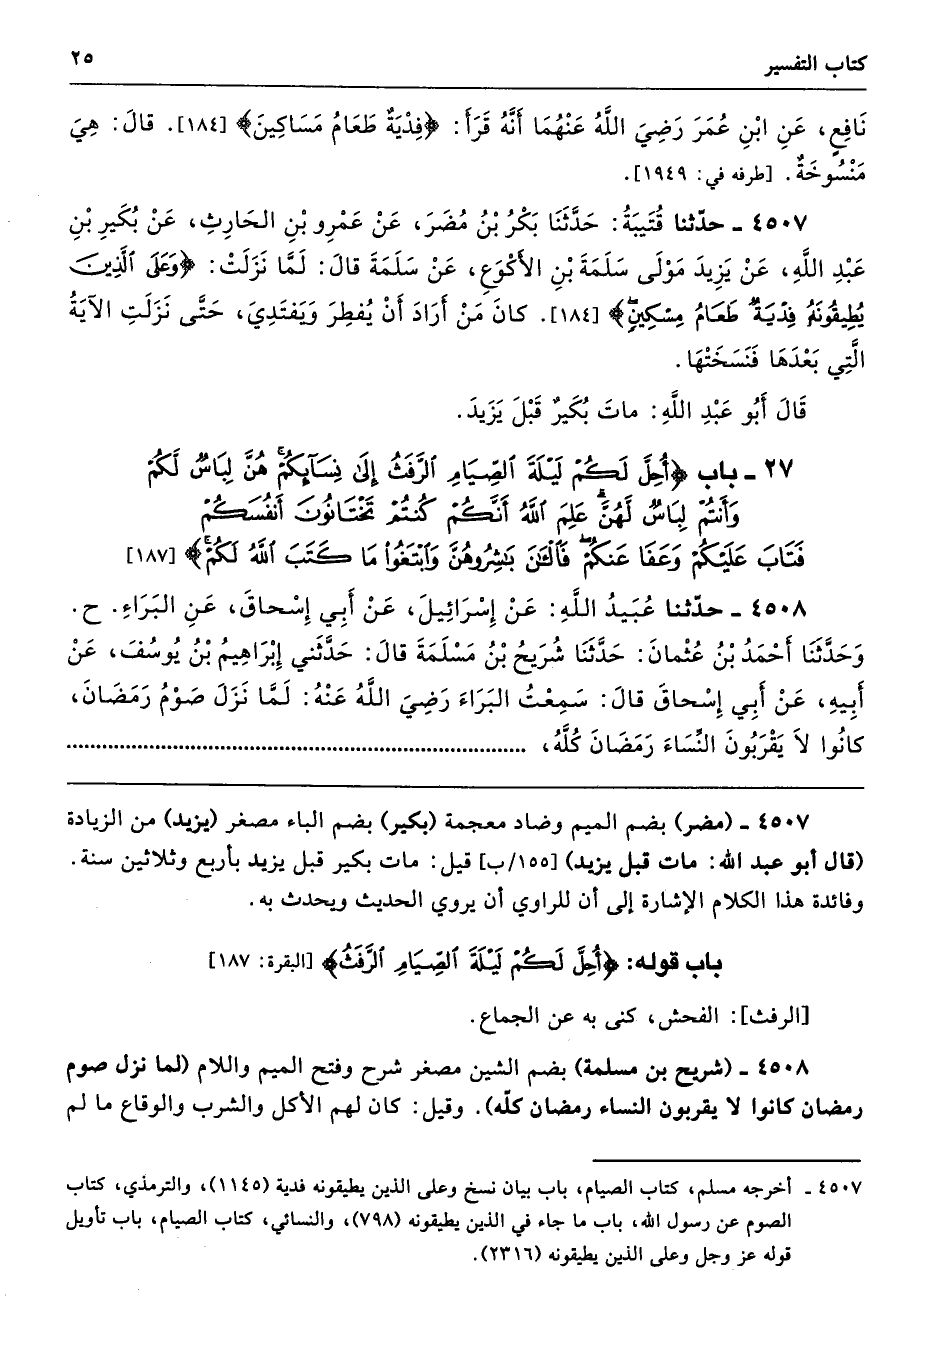 كتاب التفسير
٢٥
نَافِعٍ، عَنِ ابْنِ عُمَرَ رَضِيَ اللَّهُ عَنْهُمَا أَنَّهُ قَرَأَ: ﴿فِدْيَةٌ طَعَامُ مَسَاكِينَ﴾ [١٨٤]. قالَ: هِيَ
مَنْسُوخَةٌ. [طرفه في: ١٩٤٩].
٤٥٠٧ ـ حدّثنا قُتَيبَةُ: حَدَّثَنَا بَكْرُ بْنُ مُضَرَ، عَنْ عَمْرِو بْنِ الحَارِثِ، عَنْ بُكَيرِ بْنِ
عَبْدِ اللَّهِ، عَنْ يَزِيدَ مَوْلَى سَلَمَةَ بْنِ الأَكْوَعِ، عَنْ سَلَمَةَ قالَ: لَمَّا نَزَلَتْ: ﴿وَعَلَى ٱلَّذِينَ
يُطِيقُونَهُۥ فِدْيَةٌ طَعَامُ مِسْكِينٍۖ﴾ [١٨٤]. كانَ مَنْ أَرَادَ أَنْ يُفطِرَ وَيَفْتَدِيَ، حَتَّى نَزَلَتِ الآيَةُ
الَّتِي بَعْدَهَا فَنَسَخَتْهَا.
قَالَ أَبُو عَبْدِ اللَّهِ: ماتَ بُكَيرٌ قَبْلَ يَزِيدَ.
٢٧ ـ باب ﴿أُحِلَّ لَكُمْ لَيْلَةَ ٱلصِّيَامِ ٱلرَّفَثُ إِلَىٰ نِسَآئِكُمْۚ هُنَّ لِبَاسٌ لَّكُمْ
وَأَنتُمْ لِبَاسٌ لَّهُنَّۗ عَلِمَ ٱللَّهُ أَنَّكُمْ كُنتُمْ تَخْتَانُونَ أَنفُسَكُمْ
فَتَابَ عَلَيْكُمْ وَعَفَا عَنكُمْۖ فَٱلْـَٰٔنَ بَٰشِرُوهُنَّ وَٱبْتَغُوا۟ مَا كَتَبَ ٱللَّهُ لَكُمْۚ﴾ [١٨٧]
٤٥٠٨ ـ حدّثنا عُبَيدُ اللَّهِ: عَنْ إِسْرَائِيلَ، عَنْ أَبِي إِسْحاقَ، عَنِ البَرَاءِ. ح.
وَحَدَّثَنَا أَحْمَدُ بْنُ عُثْمانَ: حَدَّثَنَا شُرَيحُ بْنُ مَسْلَمَةَ قالَ: حَدَّثَنِي إِبْرَاهِيمُ بْنُ يُوسُفَ، عَنْ
أَبِيهِ، عَنْ أَبِي إِسْحاقَ قالَ: سَمِعْتُ البَرَاءَ رَضِيَ اللَّهُ عَنْهُ: لَمَّا نَزَلَ صَوْمُ رَمَضَانَ،
كانُوا لاَ يَقْرَبُونَ النِّسَاءَ رَمَضَانَ كُلَّهُ، ............................................................
٤٥٠٧ ـ (مضر) بضم الميم وضاد معجمة (بكير) بضم الباء مصغر (يزيد) من الزيادة
(قال أبو عبد الله: مات قبل يزيد) [١٥٥/ب] قيل: مات بكير قبل يزيد بأربع وثلاثين سنة.
وفائدة هذا الكلام الإشارة إلى أن للراوي أن يروي الحديث ويحدث به.
باب قوله: ﴿أُحِلَّ لَكُمْ لَيْلَةَ ٱلصِّيَامِ ٱلرَّفَثُ﴾ [البقرة: ١٨٧]
[الرفث]: الفحش، كنى به عن الجماع.
٤٥٠٨ ـ (شريح بن مسلمة) بضم الشين مصغر شرح وفتح الميم واللام (لما نزل صوم
رمضان كانوا لا يقربون النساء رمضان كلّه). وقيل: كان لهم الأكل والشرب والوقاع ما لم
٤٥٠٧ ـ أخرجه مسلم، كتاب الصيام، باب بيان نسخ وعلى الذين يطيقونه فدية (١١٤٥)، والترمذي، كتاب
الصوم عن رسول الله، باب ما جاء في الذين يطيقونه (٧٩٨)، والنسائي، كتاب الصيام، باب تأويل
قوله عز وجل وعلى الذين يطيقونه (٢٣١٦).